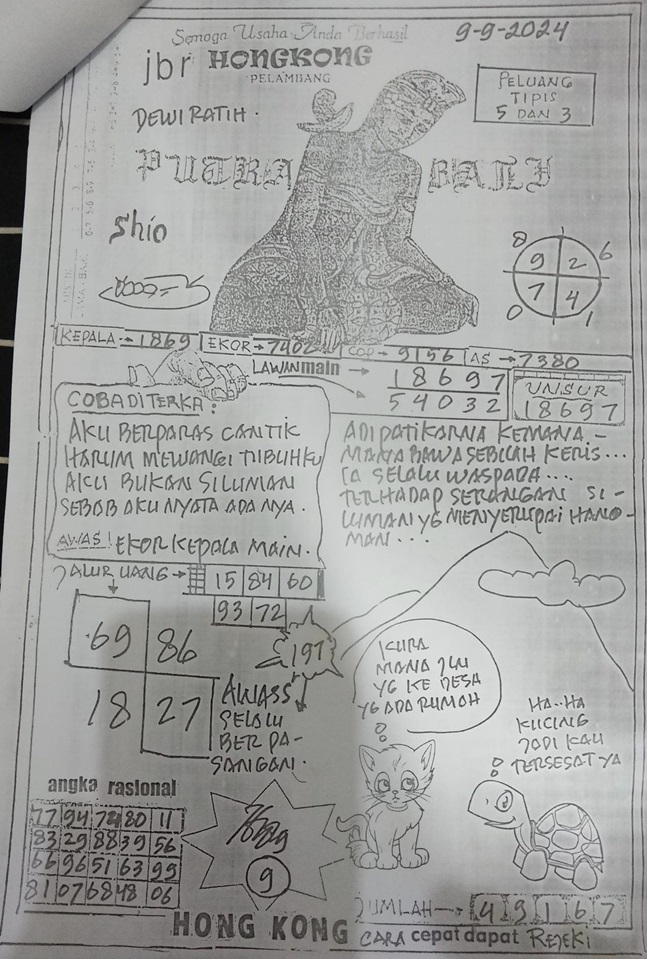 Semoga Usaha Anda Berhasil
9-9-2024
jbr HONGKONG
PELAMBANG
PELUANG
TIPIS
5 DAN 3
DEWI RATIH.
PUTRA BALI
Shio
8 6
9 2
7 4
0 1
KEPALA → 1869 EKOR → 7402 COP → 9156 AS → 7380
LAWAN main →
1 8 6 9 7
5 4 0 3 2
UNSUR
18697
COBA DITERKA:
AKU BERPARAS CANTIK
HARUM MEWANGI TUBUHKU
AKU BUKAN SILUMAN
SEBOB AKU NYATA ADANYA.
AWAS! EKOR KEPALA MAIN.
ADIPATI KARNA KEMANA-
MANA BAWA SEBILAH KERIS...
IA SELALU WASPADA....
TERHADAP SERANGAN SI-
LUMAN YG MENYERUPAI HANO-
MAN....
JALUR UANG → 15 84 60
93 72
69 86
18 27
197
AWASS
SELALU
BERPA-
SANGAN.
KURA
MANA JLU
YG KE DESA
YG ADA RUMAH
HA..HA
KUCING
JADI KAU
TERSESAT YA
angka rasional
77 94 74 80 11
83 29 88 39 56
66 96 51 63 99
81 07 68 48 06
9
JUMLAH → 4 9 1 6 7
HONG KONG CARA cepat dapat REJEKI